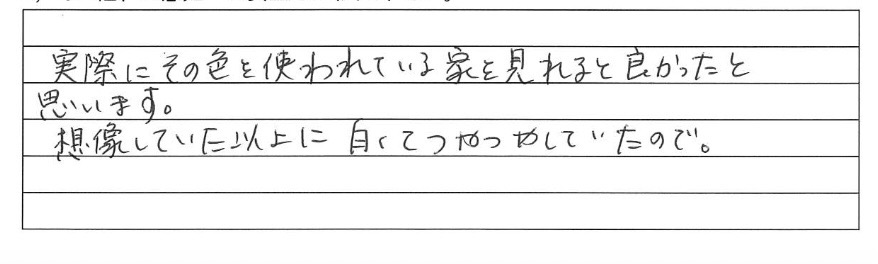 実際にその色を使われている家を見れると良かったと
思います。
想像していた以上に白くてつやつやしていたので。